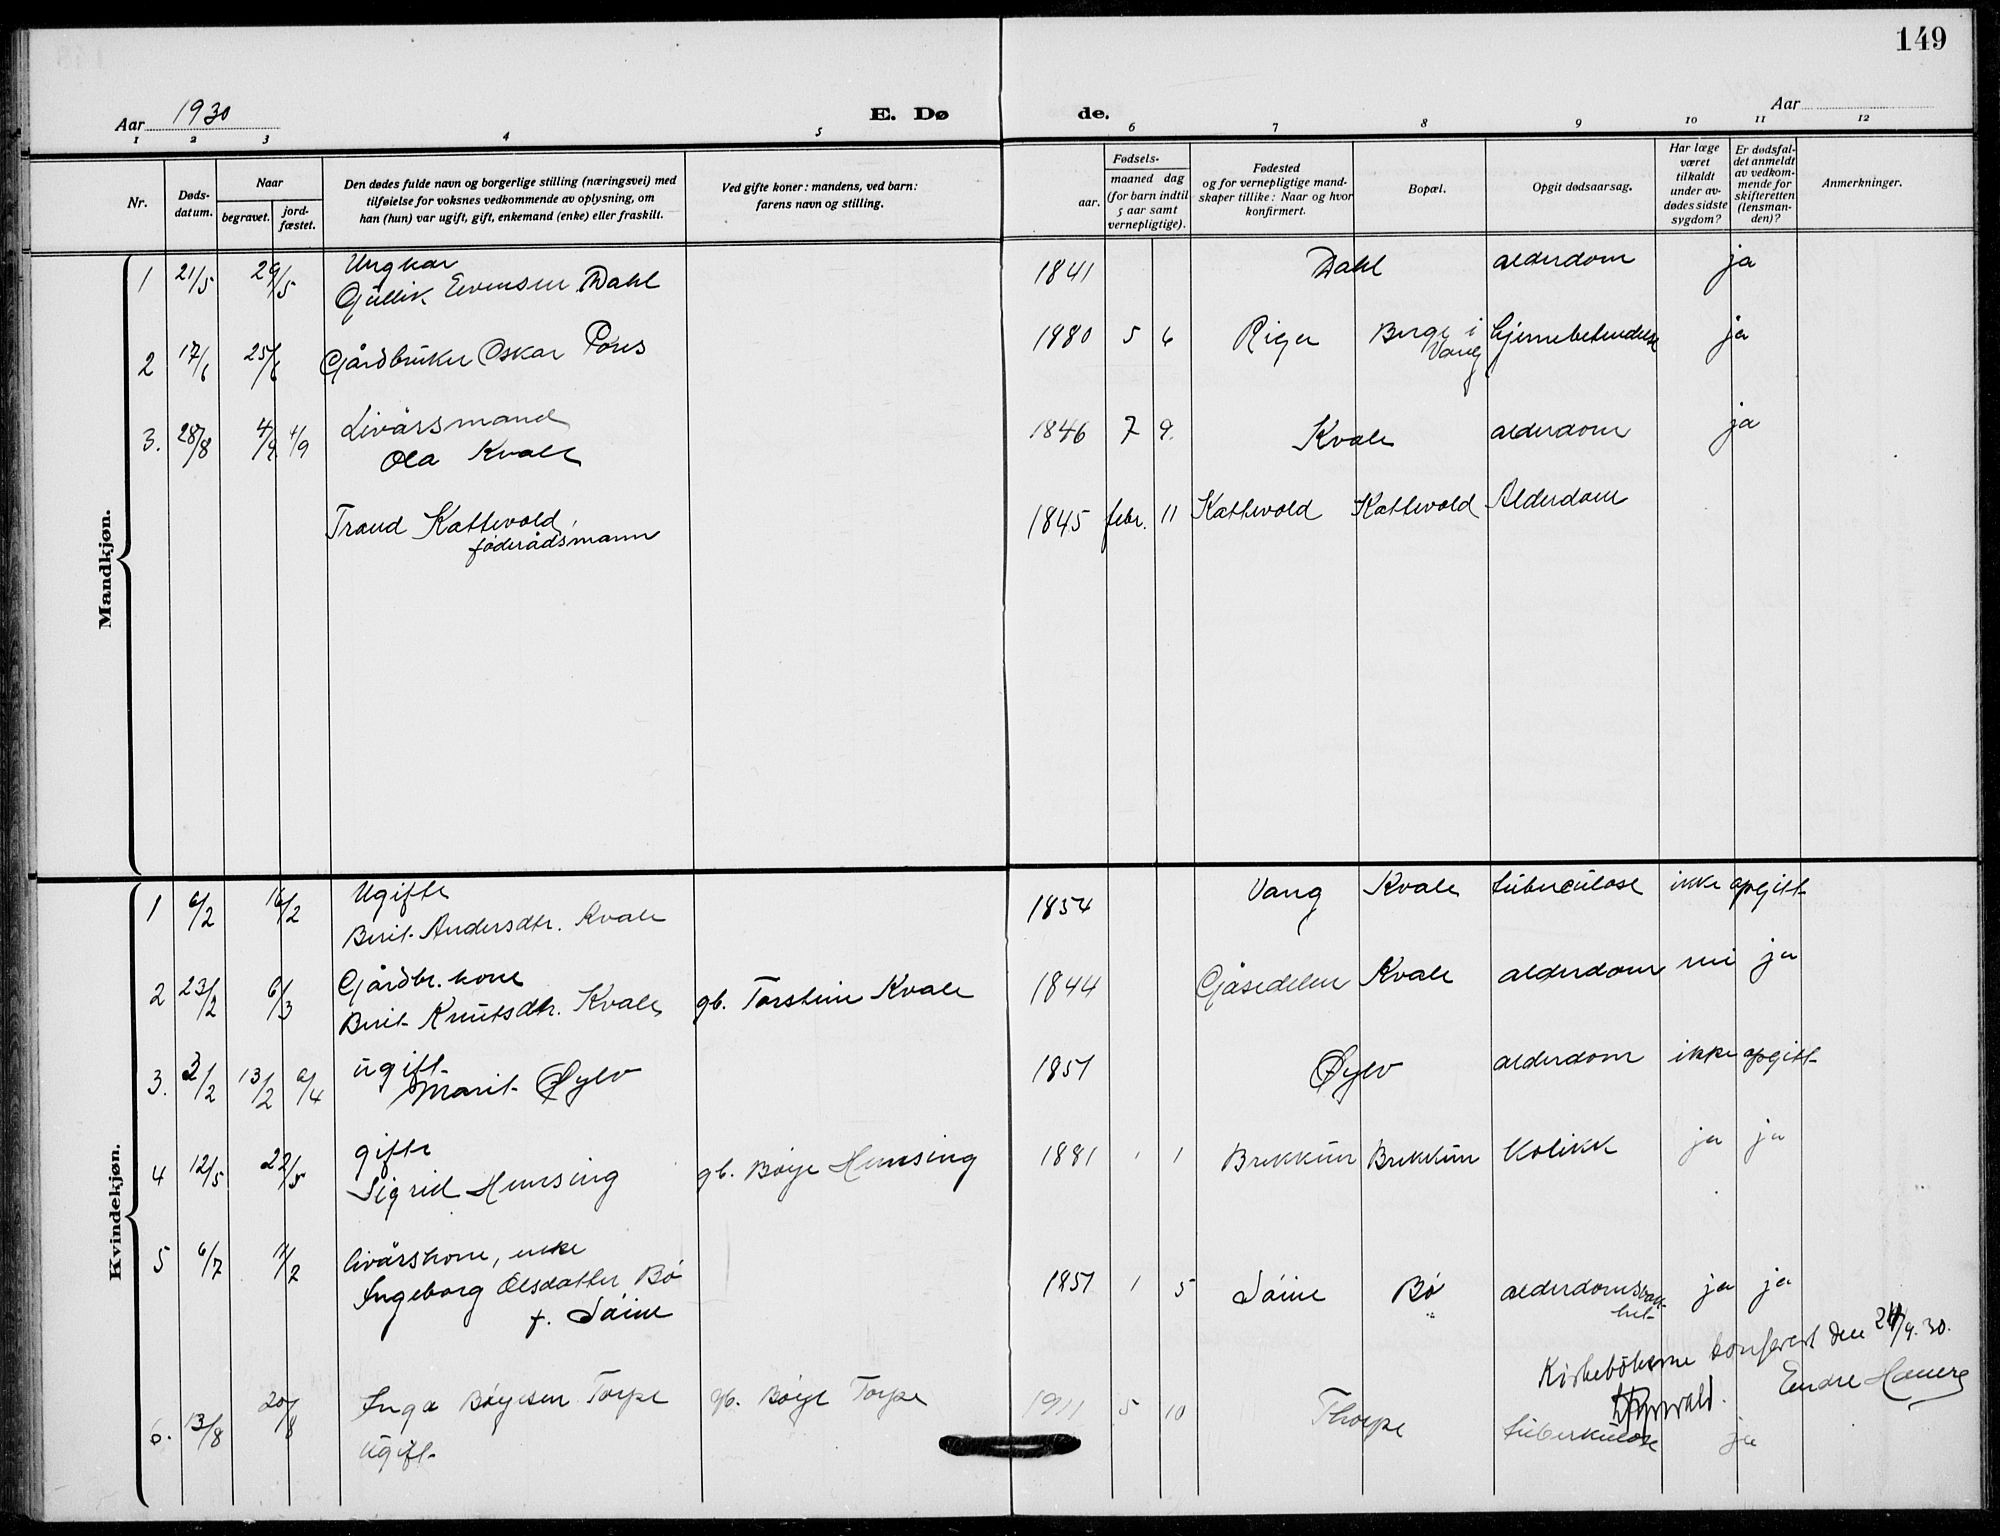 149
Aar 1930
E. Dø
de.
Aar
1 2 3 4 5 6 7 8 9 10 11 12
Nr.
Døds-
datum.
Naar
begravet.
jord-
fæstet.
Den dødes fulde navn og borgerlige stilling (næringsvei) med
tilføielse for voksnes vedkommende av oplysning, om
han (hun) var ugift, gift, enkemand (enke) eller fraskilt.
Ved gifte koner: mandens, ved barn:
farens navn og stilling.
Fødsels-
aar.
maaned dag
(for barn indtil
5 aar samt
vernepligtige).
Fødested
og for vernepligtige mand-
skaper tillike: Naar og hvor
konfirmert.
Bopæl.
Opgit dødsaarsag.
Har læge
været
tilkaldt
under av-
dødes sidste
sygdom?
Er dødsfal-
det anmeldt
av vedkom-
mende for
skifteretten
(lensman-
den)?
Anmerkninger.
Mandkjøn.
1 21/5 29/5 Ungkar
Gullik Evensen Dahl 1841 Dahl alderdom ja
2 17/6 25/6 Gårdbruker Oskar 1880 5 6 Berge i
Vang ja
3. 28/8 4/9 4/9 Livårsmand
Ola Kvale 1846 7 9. Kvale alderdom ja
Trond Kattevold,
föderådsmann 1845 febr. 11 Kattevold Kattevold Alderdom
Kvindekjøn.
1 6/2 16/2 Ugifte
Berit Andersdtr. Kvale 1854 Vang Kvale tuberculose ikke opgitt
2 23/2 6/3 Gårdbr. kone
Berit Knutsdtr. Kvale gb. Torstein Kvale 1844 Gåsedelen Kvale alderdom nei ja
3. 2/2 13/2 6/4 ugift
Marit Øylo 1851 Øylo alderdom ikke opgitt
4 12/5 22/5 gifte
Sigrid Hemsing gb. Böye Hemsing 1881 1 1 Brekkun Brekkun Kolikk ja ja
5 6/7 11/2 livårskone, enke
Ingeborg Olsdatter Bö
f. Söine 1851 1 5 Söine Bö alderdomssvak-
het ja ja
Kirkebökerne konferert den 24/9.30.
Endre Hauere
6. 13/8 20/8 Inga Böyesen Torpe
ugift gb. Böye Torpe 1911 5 10 Thorpe tuberkulose ja